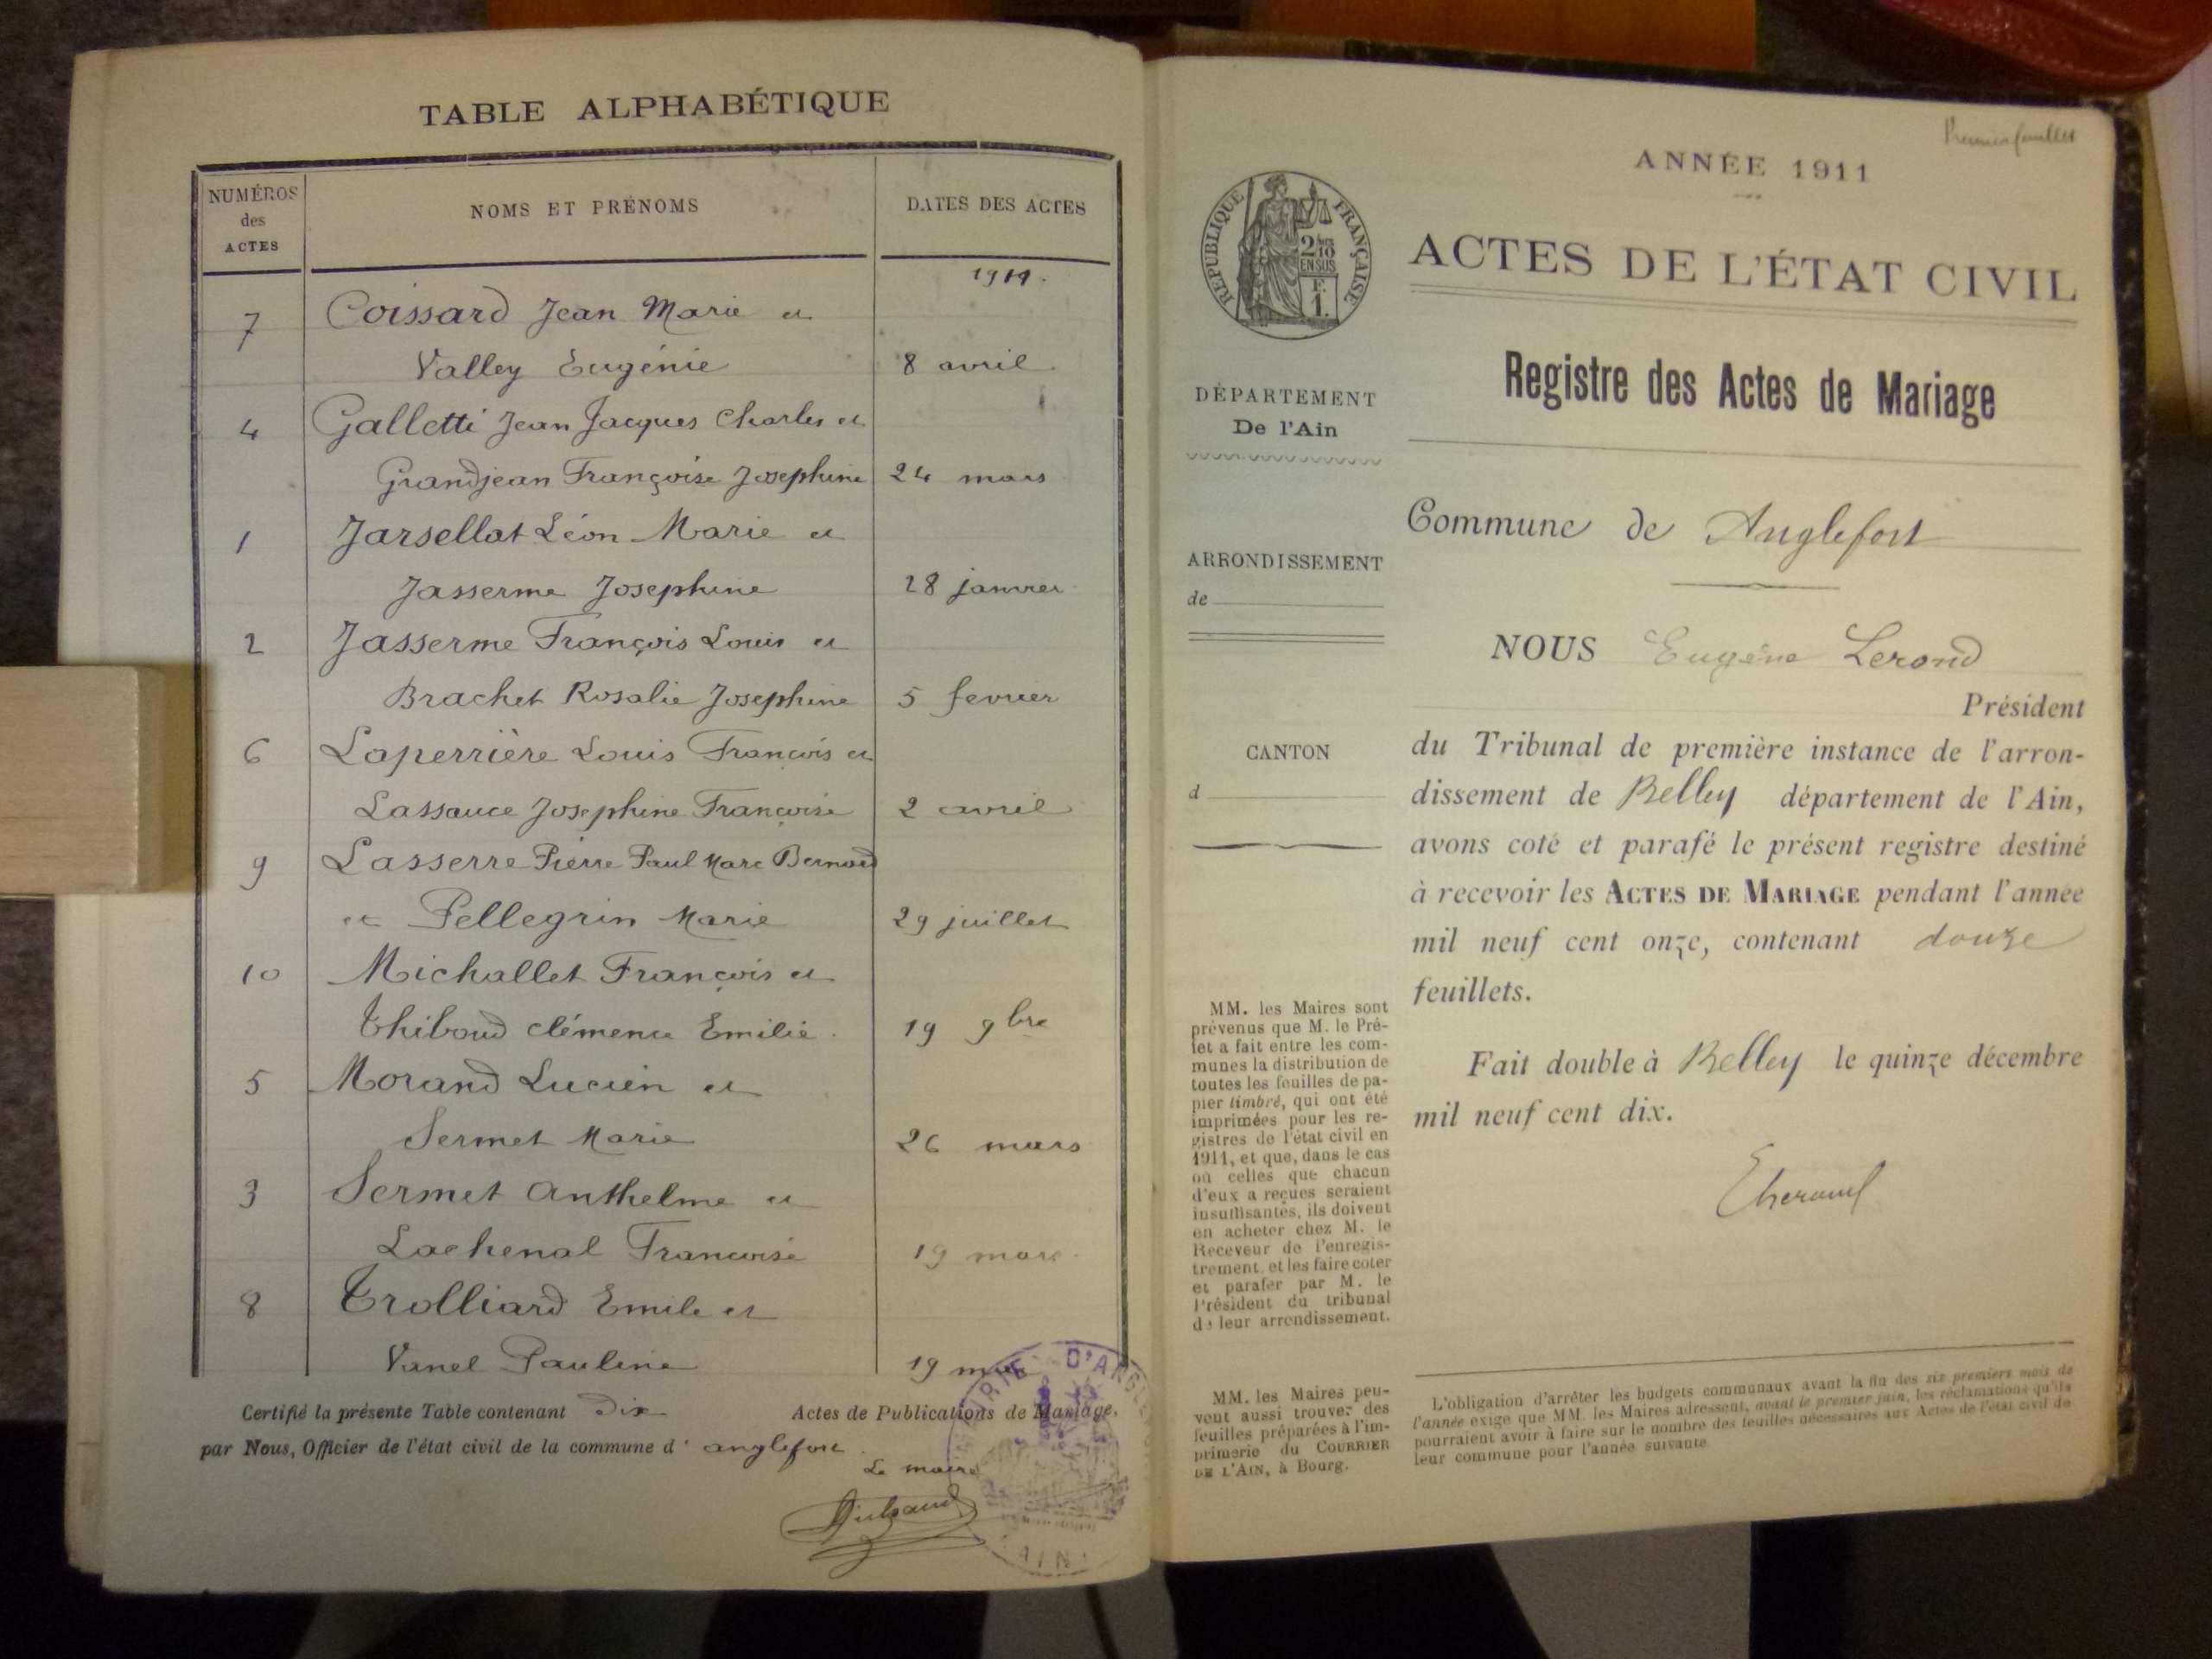 TABLE ALPHABÉTIQUE
NUMÉROS
des
ACTES
NOMS ET PRÉNOMS
DATES DES ACTES
7 Coissard Jean Marie et
Valley Eugénie 8 avril
4 Galletti Jean Jacques Charles et
Grandjean Françoise Josephine 24 mars
1 Jarsellat Léon Marie et
Jasserme Josephine 28 janvier
2 Jasserme François Louis et
Brachet Rosalie Josephine 5 fevrier
6 Laperrière Louis François et
Lassauce Josephine Françoise 2 avril
9 Lasserre Pierre Paul Marc Bernard
et Pellegrin Marie 29 juillet
10 Michallet François et
Thiboud Clémence Emilie 19 9bre
5 Morand Lucien et
Sermet Marie 26 mars
3 Sermet Anthelme et
Lachenal Francoise 19 mars
8 Trolliard Emile et
Vanel Pauline 19
Certifié la présente Table contenant Dix Actes de Publications de Mariage,
par Nous, Officier de l'état civil de la commune d' anglefort
Le maire
MAIRIE D'ANGLEFORT
AIN
Premier feuillet
ANNÉE 1911
RÉPUBLIQUE FRANÇAISE
2/10
EN SUS
F.
1.
ACTES DE L'ÉTAT CIVIL
Registre des Actes de Mariage
DÉPARTEMENT
De l'Ain
Commune de Anglefort
ARRONDISSEMENT
de
NOUS Eugène Lerond
Président
du Tribunal de première instance de l'arron-
dissement de Belley département de l'Ain,
avons coté et parafé le présent registre destiné
à recevoir les ACTES DE MARIAGE pendant l'année
mil neuf cent onze, contenant douze
feuillets.
CANTON
d
Fait double à Belley le quinze décembre
mil neuf cent dix.
MM. les Maires sont
prévenus que M. le Pré-
fet a fait entre les com-
munes la distribution de
toutes les feuilles de pa-
pier timbré, qui ont été
imprimées pour les re-
gistres de l'état civil en
1911, et que, dans le cas
où celles que chacun
d'eux a reçues seraient
insuffisantes, ils doivent
en acheter chez M. le
Receveur de l'enregis-
trement, et les faire coter
et parafer par M. le
Président du tribunal
de leur arrondissement.
MM. les Maires peu-
vent aussi trouver des
feuilles préparées à l'im-
primerie du COURRIER
DE L'AIN, à Bourg.
L'obligation d'arrêter les budgets communaux avant la fin des six premiers mois de
l'année exige que MM. les Maires adressent, avant le premier juin, les réclamations qu'ils
pourraient avoir à faire sur le nombre des feuilles nécessaires aux Actes de l'état civil de
leur commune pour l'année suivante.